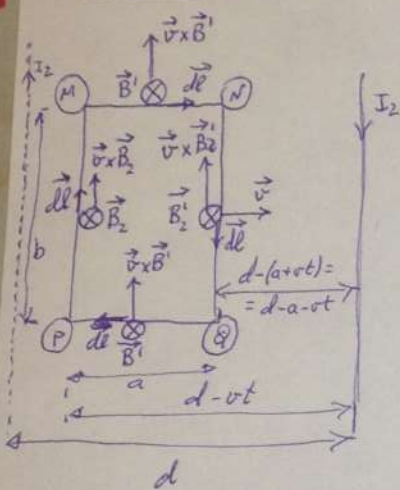 v⃗×B⃗'
I₂
M
B⃗'
dl⃗
N
I₂
v⃗×B⃗₂
v⃗×B⃗₂'
dl⃗
B⃗₂
B⃗₂'
v⃗
b
v⃗×B⃗'
dl⃗
d-(a+vt)=
=d-a-vt
P
dl⃗
B⃗'
Q
a
d-vt
d